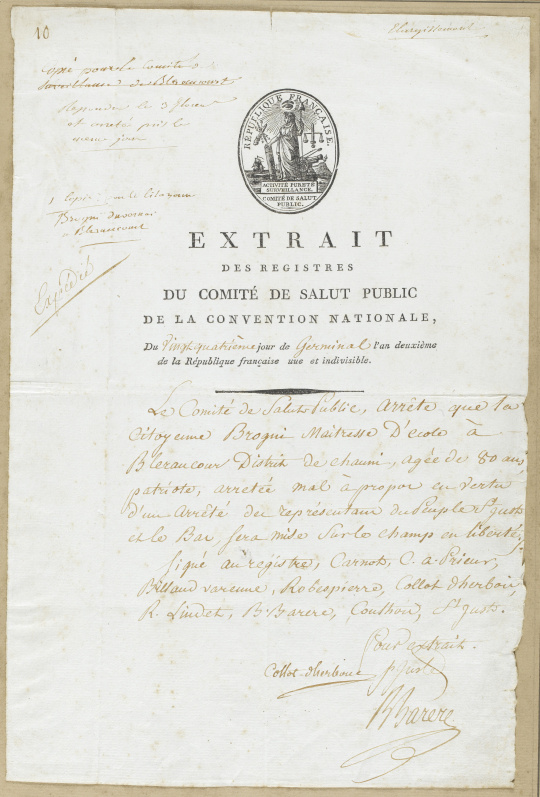 10
Elargissement
copié pour le Comité de
Surveillance de Blerancourt
le 3 floreal
et envoié puis le
meme jour
1 Copie par le Citoyen
Brogni
a Blerancourt
Expédié
RÉPUBLIQUE FRANÇAISE.
ACTIVITÉ PURETÉ
SURVEILLANCE.
COMITÉ DE SALUT
PUBLIC.
EXTRAIT
DES REGISTRES
DU COMITÉ DE SALUT PUBLIC
DE LA CONVENTION NATIONALE,
Du Vingt quatrième jour de Germinal l'an deuxième
de la République française une et indivisible.
Le Comité de Salut Public, arrête que la
Citoyenne Brogni Maitresse D'ecole à
Blerancour District de chauni, agée de 80 ans
patriote, arretée mal à propos en vertu
d'un Arrêté des représentans du Peuple St just
et le Bas, sera mise sur le champ en liberté./.
signé au registre, Carnot, C. a. Prieur,
Billaud varenne, Robespierre, Collot dherbois,
R. Lindet, B. Barere, Couthon, St just.
Pour extrait.
Collot-dherbois St just
B Barere